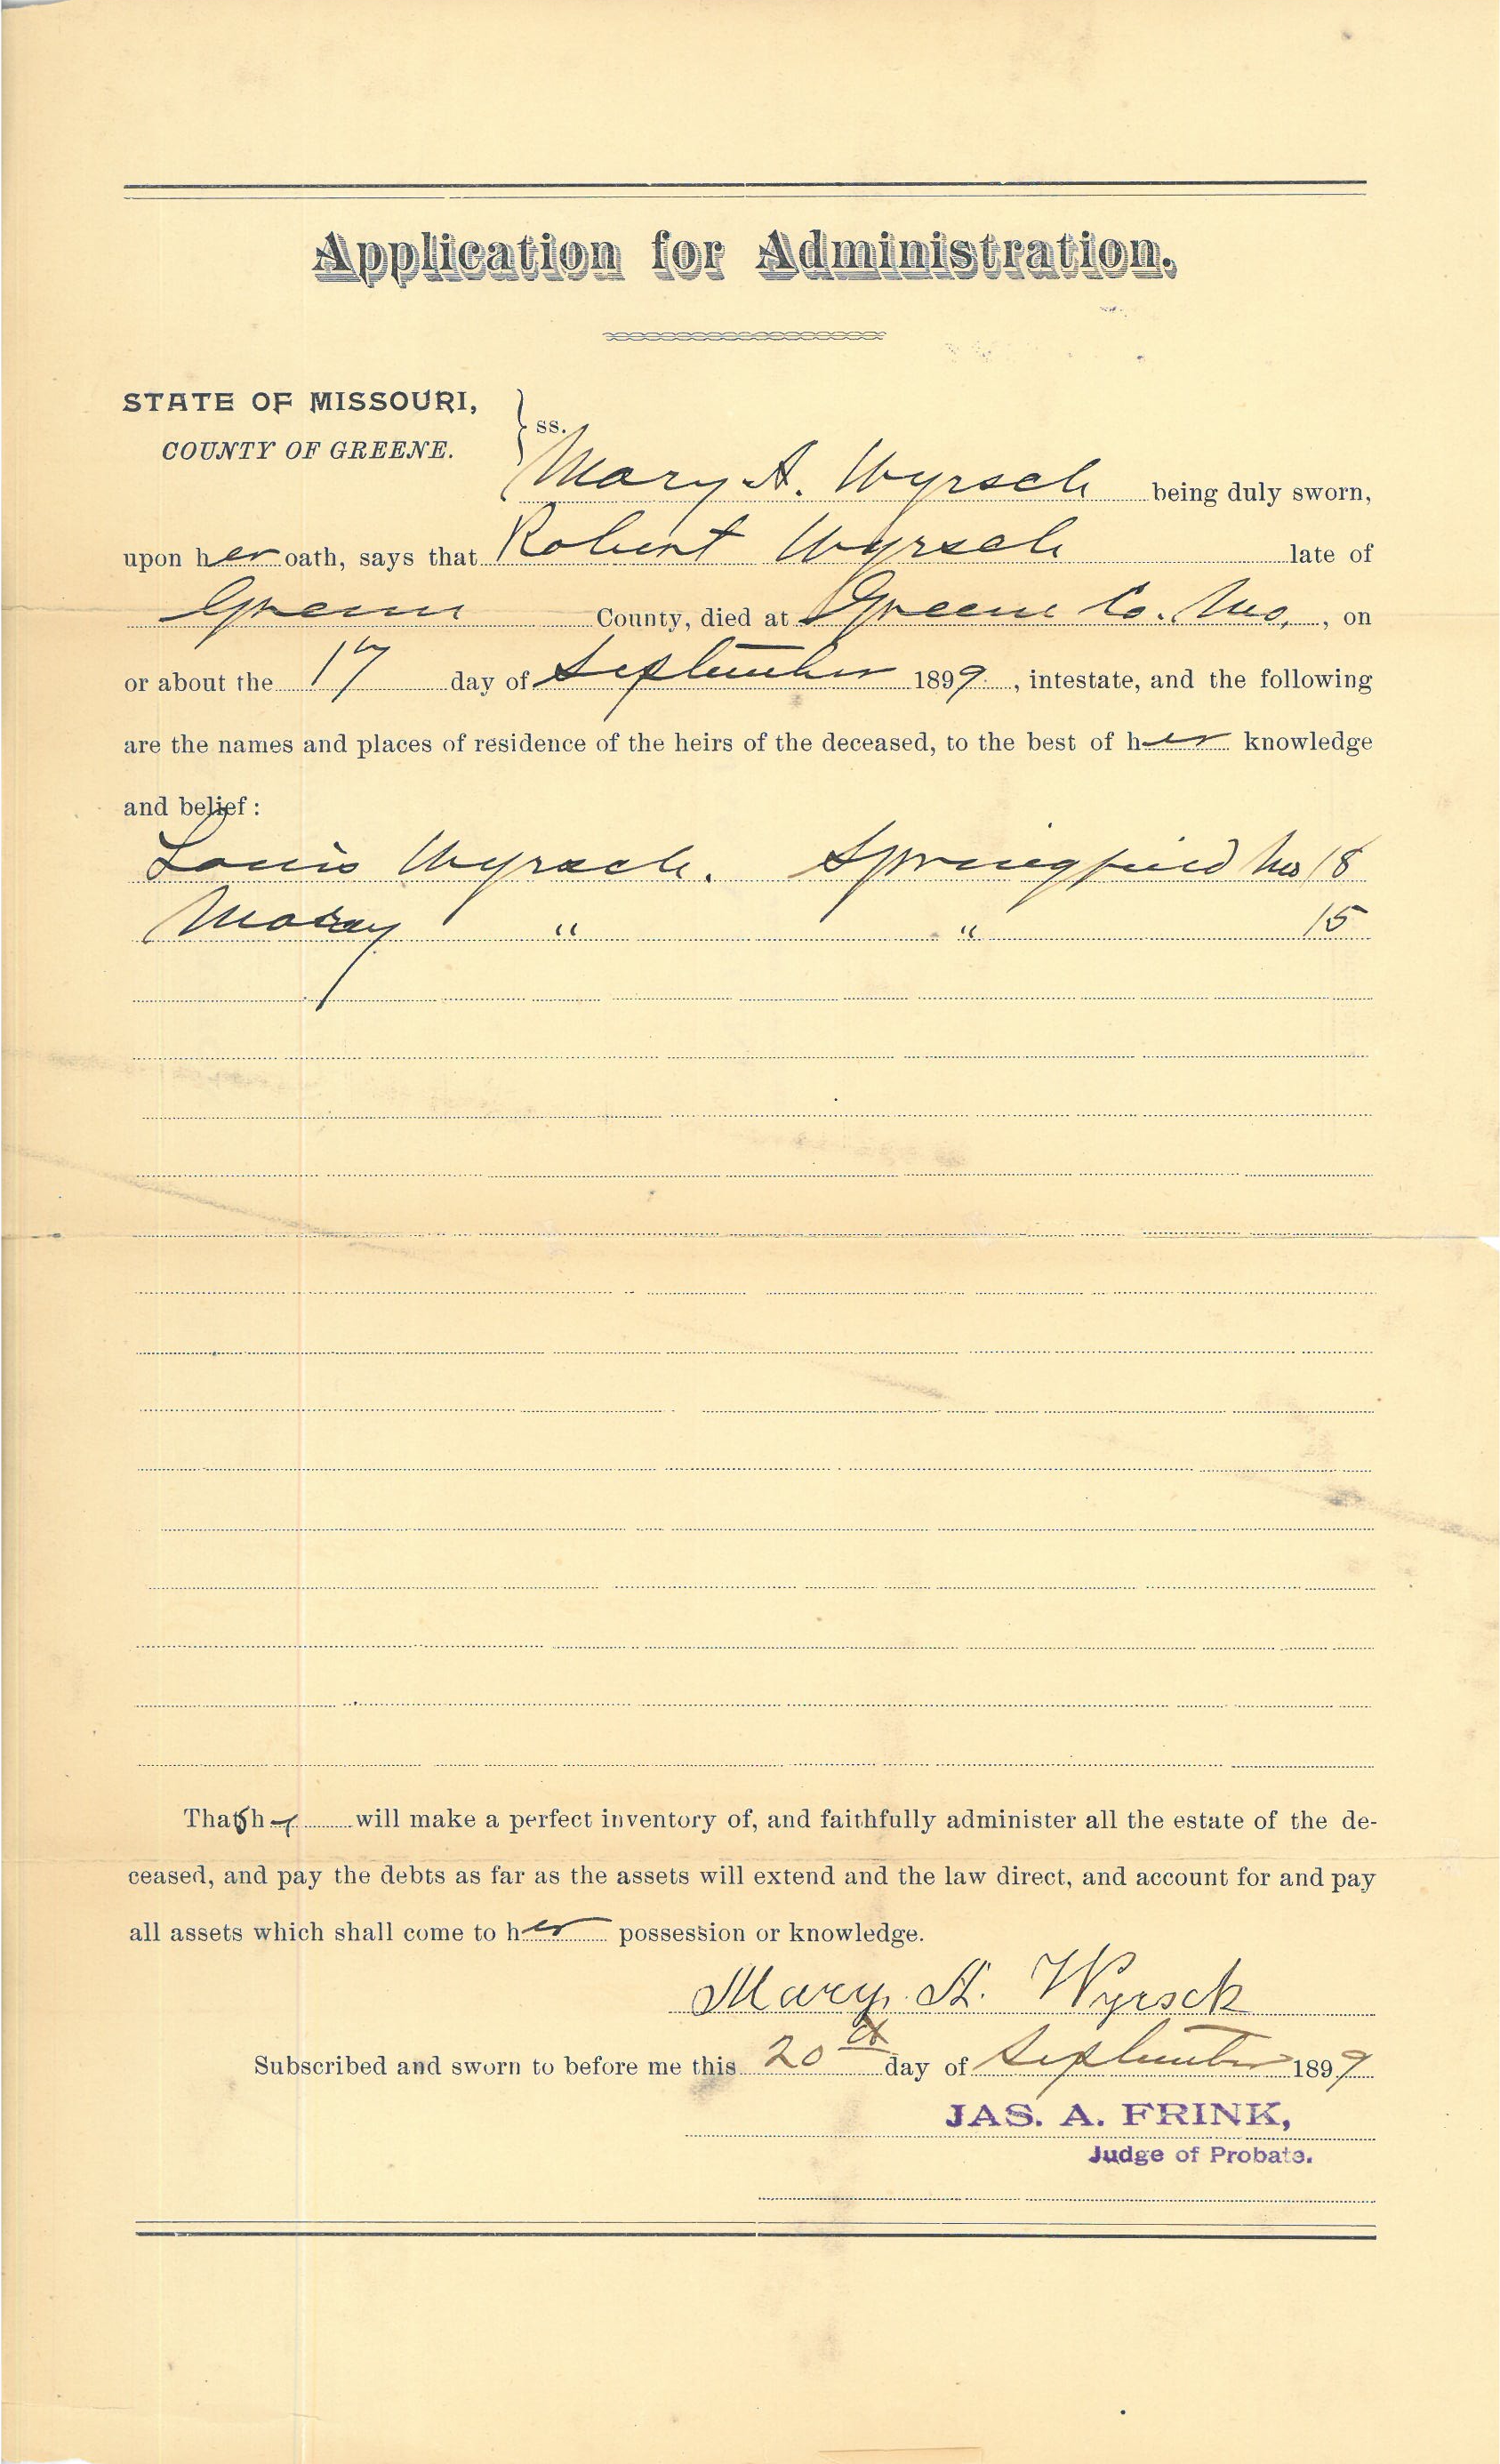 Application for Administration.
STATE OF MISSOURI,
COUNTY OF GREENE.
ss.
Mary A. Wyrsch being duly sworn,
upon her oath, says that Robert Wyrsch late of
Greene County, died at Greene Co. Mo, , on
or about the 17 day of September 1899 , intestate, and the following
are the names and places of residence of the heirs of the deceased, to the best of her knowledge
and belief:
Louis Wyrsch. Springfield Mo 18
Mary " " 15
That She will make a perfect inventory of, and faithfully administer all the estate of the de-
ceased, and pay the debts as far as the assets will extend and the law direct, and account for and pay
all assets which shall come to her possession or knowledge.
Mary A. Wyrsch
Subscribed and sworn to before me this 20th day of September 1899
JAS. A. FRINK,
Judge of Probate.